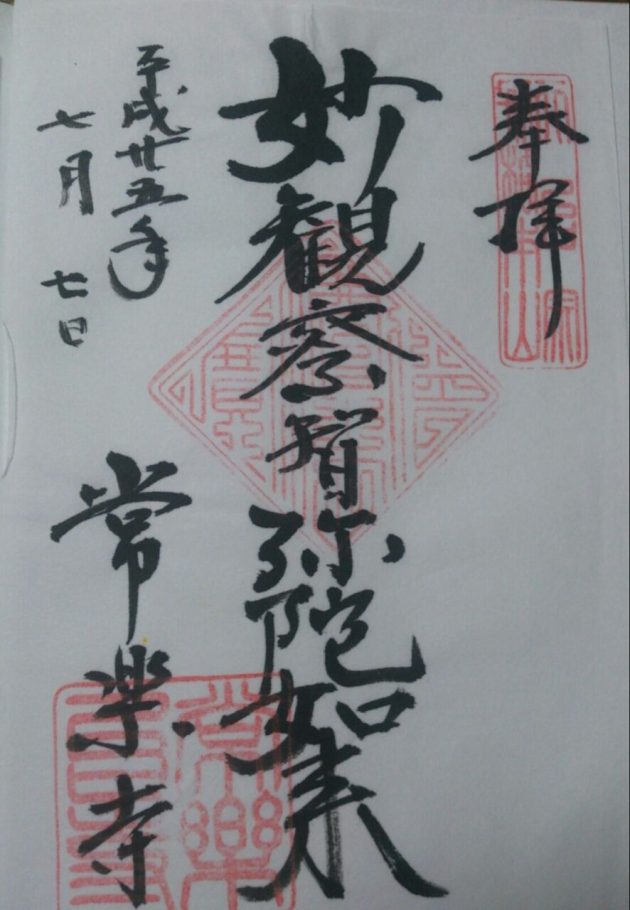 奉拝
妙観察智弥陀如来
平成廿五年
七月七日
常楽寺